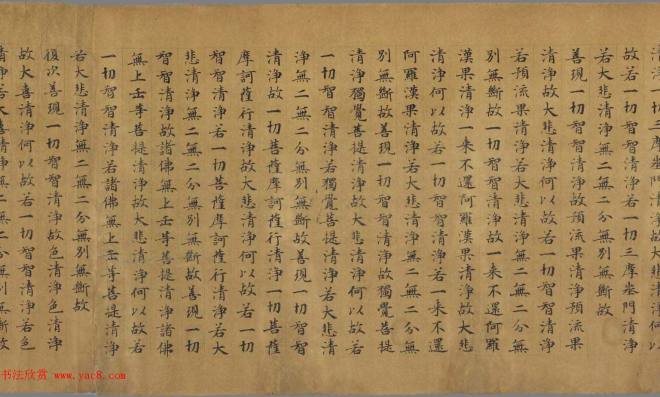 清淨一切三摩地門清淨故大
故若一切智智清淨若一切三摩地門清淨
若大悲清淨無二無二分無別無斷故
善現一切智智清淨故預流果清淨預流果
清淨故大悲清淨何以故若一切智智清淨
若預流果清淨若大悲清淨無二無二分無
別無斷故一切智智清淨故一來不還阿羅
漢果清淨一來不還阿羅漢果清淨故大悲
清淨何以故若一切智智清淨若一來不還
阿羅漢果清淨若大悲清淨無二無二分無
別無斷故善現一切智智清淨故獨覺菩提
清淨獨覺菩提清淨故大悲清淨何以故若
一切智智清淨若獨覺菩提清淨若大悲清
淨無二無二分無別無斷故善現一切智智
清淨故一切菩薩摩訶薩行清淨一切菩薩
摩訶薩行清淨故大悲清淨何以故若一切
智智清淨若一切菩薩摩訶薩行清淨若大
悲清淨無二無二分無別無斷故善現一切
智智清淨故諸佛無上正等菩提清淨諸佛
無上正等菩提清淨故大悲清淨何以故若
一切智智清淨若諸佛無上正等菩提清淨
若大悲清淨無二無二分無別無斷故
復次善現一切智智清淨故色清淨色清淨
故大喜清淨何以故若一切智智清淨若色
清淨若大喜清淨無二無二分無別無斷故
书法欣赏
www.yac8.com